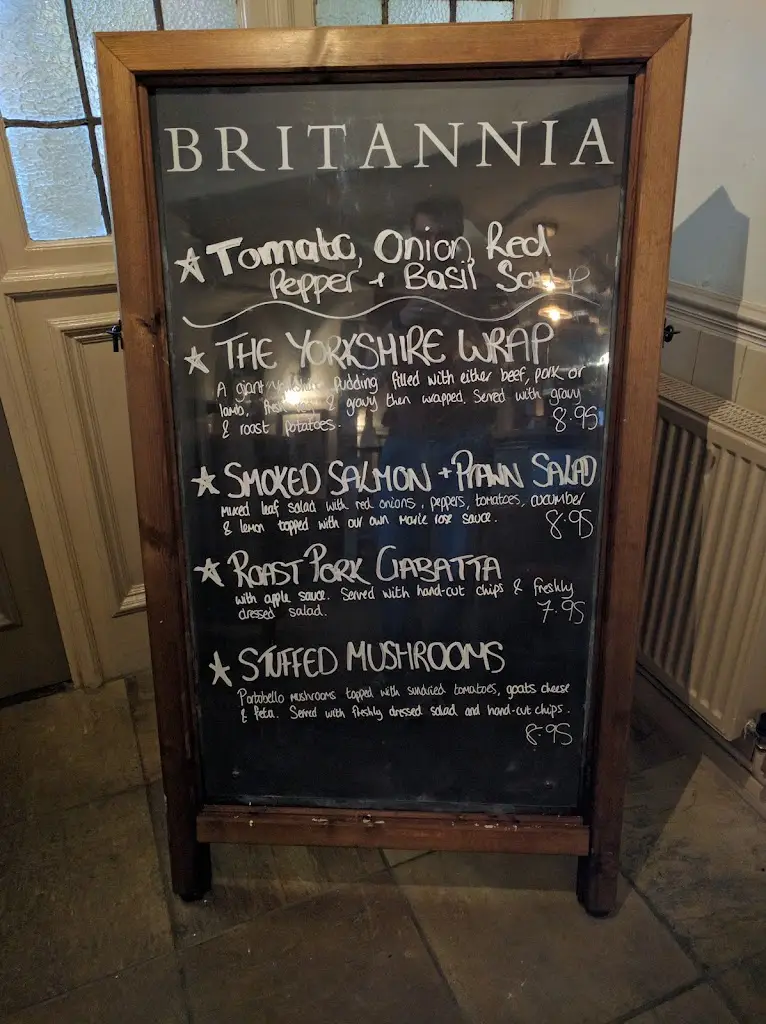 BRITANNIA
Tomato, Onion, Red
Pepper + Basil Soup
THE YORKSHIRE WRAP
A giant Yorkshire pudding filled with either beef, pork or
lamb, & gravy then wrapped. Served with gravy
& roast potatoes. 8.95
SMOKED SALMON + PRAWN SALAD
Mixed leaf salad with red onions, peppers, tomatoes, cucumber
& lemon topped with our own marie rose sauce. 8.95
ROAST PORK CIABATTA
with apple sauce. Served with hand-cut chips & freshly
dressed salad. 7.95
STUFFED MUSHROOMS
Portobello mushrooms topped with sundried tomatoes, goats cheese
& feta. Served with freshly dressed salad and hand-cut chips.
8.95